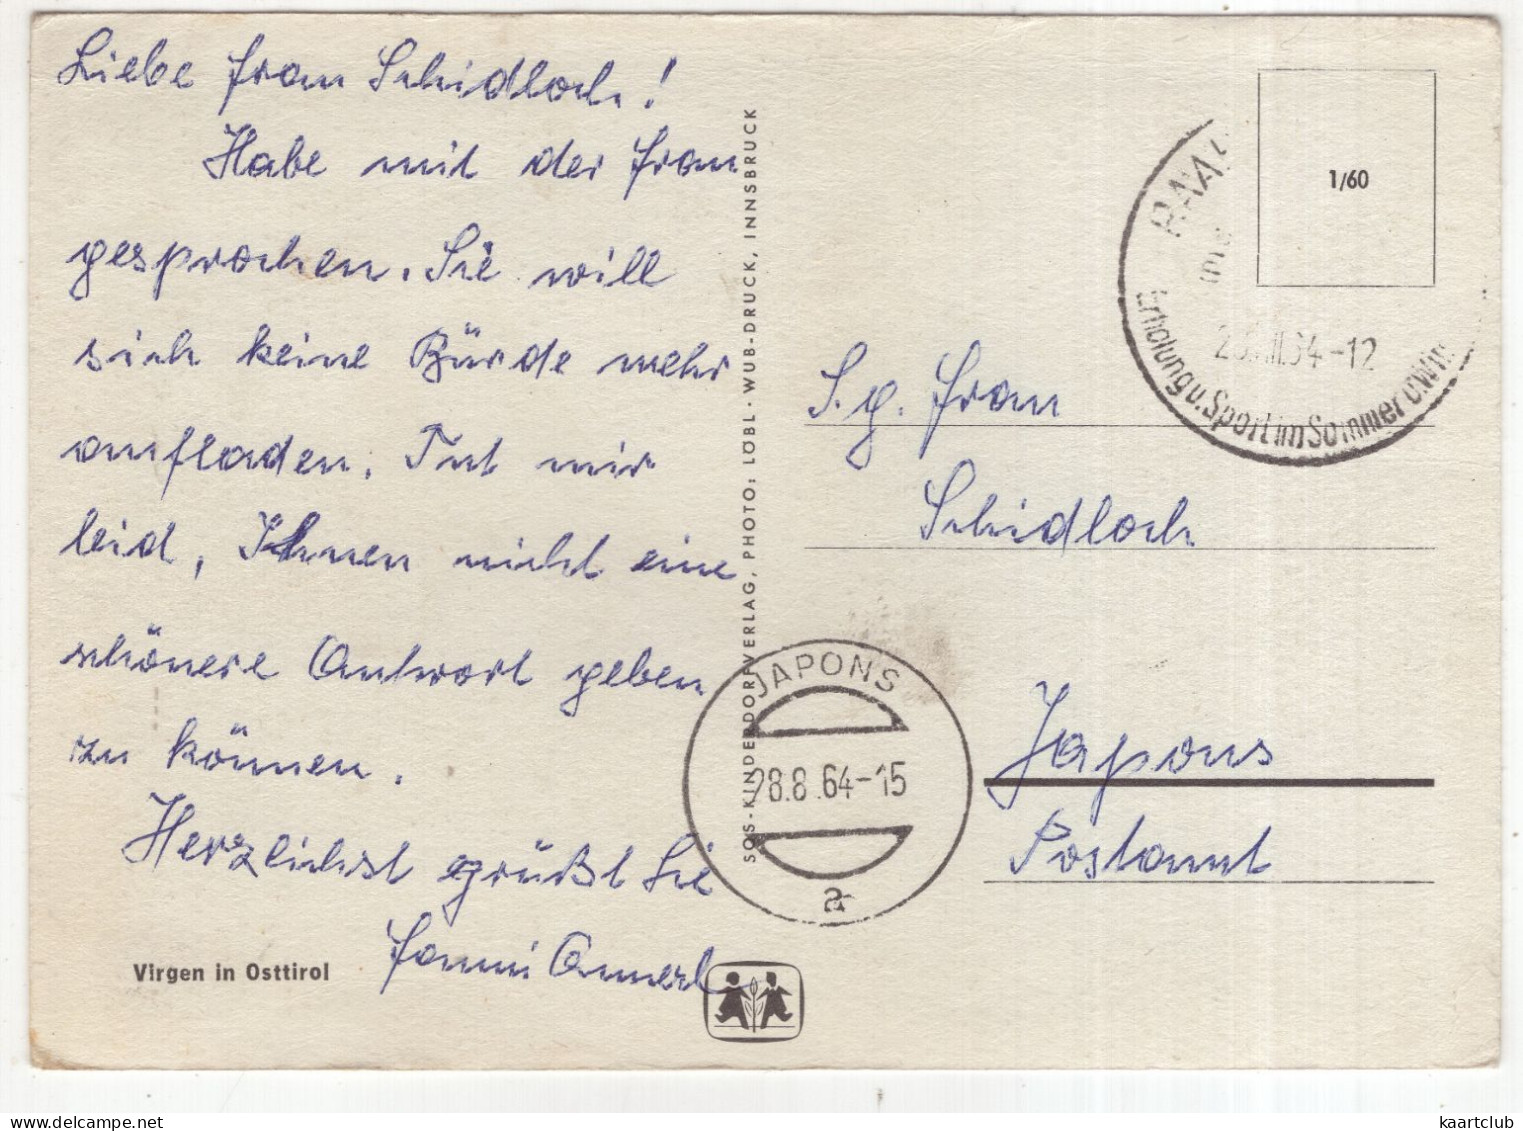 Liebe Frau Schidloch!
Habe mit der Frau
gesprochen. Sie will
sich keine Bürde mehr
aufladen. Tut mir
leid, Ihnen nicht eine
schönere Antwort geben
zu können.
Herzlichst grüßt Sie
Fanni Amerl
Virgen in Osttirol
SOS-KINDERDORFVERLAG, PHOTO: LOBL - WUB-DRUCK, INNSBRUCK
1/60
Erholung u. Sport im Sommer u.
64-12
S. g. Frau
Schidloch
Japons
Postamt
JAPONS
28.8.64-15
a
kaartclub